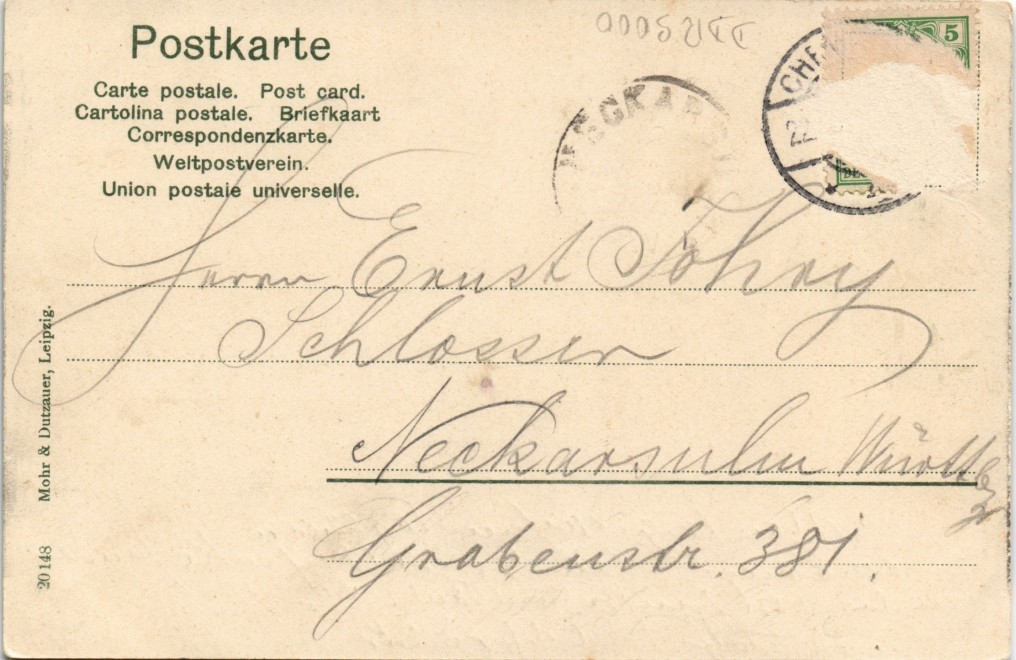 Postkarte
Carte postale. Post card.
Cartolina postale. Briefkaart
Correspondenzkarte.
Weltpostverein.
Union postale universelle.
5
CHE
NECKAR
Herrn Ernst Föhry
Schlosser
Neckarsulm Württbg
Grabenstr. 381.
Mohr & Dutzauer, Leipzig.
20148